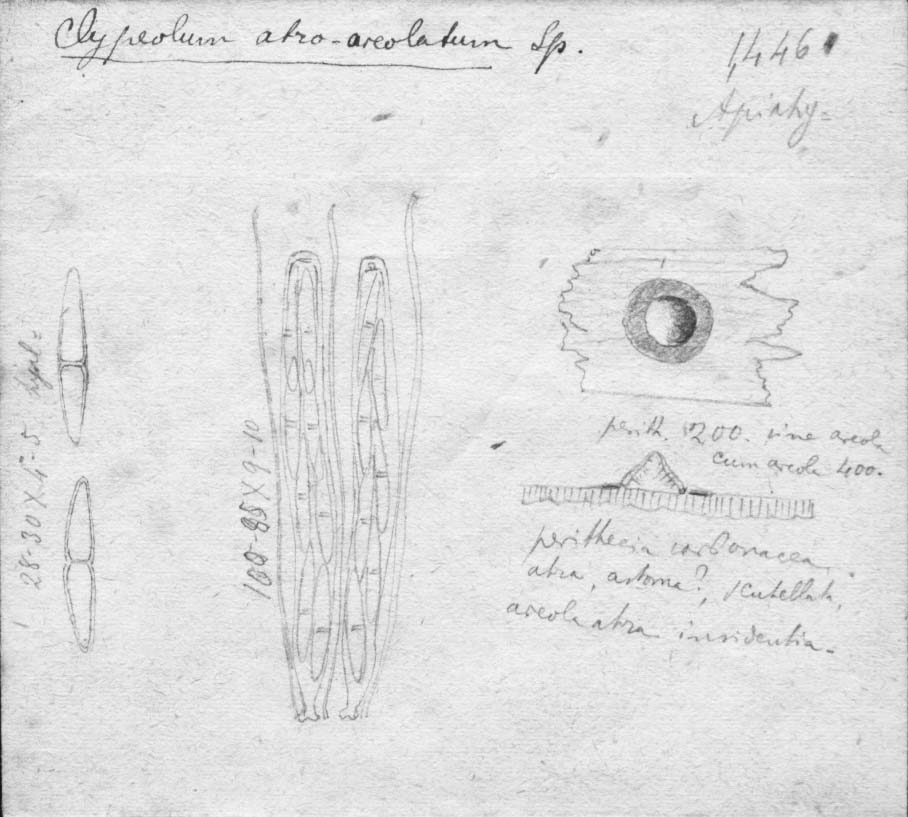 Clypeolum atro-areolatum Sp.
1,446
Apiahy=
28-30 X 4-5 hyal=
100-85 X 9-10
perith. 200. sine areola
cum areola 400.
perithecia carbonacea,
atra, astoma?, scutellata,
areola atra insidentia-